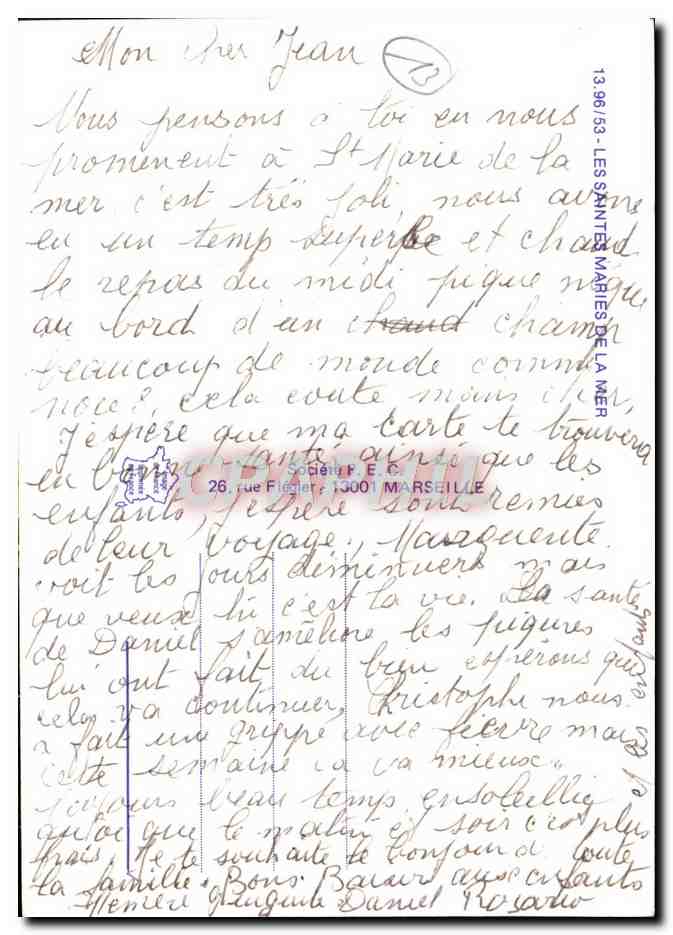 Mon cher Jean
13
Vous pensons à toi en nous
promenent à St Marie de la
mer c'est très joli nous avons
eu un temps superbe et chaud
le repas du midi pique nique
au bord d'un chaud champ
beaucoup de monde comme
nous, cela coute moins cher,
J'espère que ma carte te trouvera
en bonne santé ainsi que les
enfants, J'espère sont remies
de leur voyage, Marguerite
voit les jours diminuers mais
que veux tu c'est la vie. La santé
de Daniel s'améliore les piqures
lui ont fait du bien espérons que
cela va continuer, Christophe nous
a fait une grippe avec fièvre mais
cette semaine ca va mieux.
toujours beau temp ensoleillé
que le matin et soir c'est plus
frais. Je te souhaite le bonjour de toute
la famille. Bons Baiser aux enfants
Daniel Rosario
13.96/53 - LES SAINTES MARIES DE LA MER
Société P. E. C.
26, rue Flégier - 13001 MARSEILLE